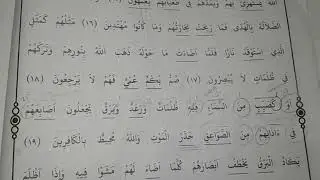 اللَّهُ يَسْتَهْزِئُ بِهِمْ وَيَمُدُّهُمْ فِي طُغْيَانِهِمْ يَعْمَهُونَ (١٥)
الضَّلَالَةَ بِالْهُدَى فَمَا رَبِحَتْ تِجَارَتُهُمْ وَمَا كَانُوا مُهْتَدِينَ (١٦) مَثَلُهُمْ كَمَثَلِ
الَّذِي اسْتَوْقَدَ نَارًا فَلَمَّا أَضَاءَتْ مَا حَوْلَهُ ذَهَبَ اللَّهُ بِنُورِهِمْ وَتَرَكَهُمْ
فِي ظُلُمَاتٍ لَا يُبْصِرُونَ (١٧) صُمٌّ بُكْمٌ عُمْيٌ فَهُمْ لَا يَرْجِعُونَ (١٨)
أَوْ كَصَيِّبٍ مِنَ السَّمَاءِ فِيهِ ظُلُمَاتٌ وَرَعْدٌ وَبَرْقٌ يَجْعَلُونَ أَصَابِعَهُمْ
فِي ءَاذَانِهِمْ مِنَ الصَّوَاعِقِ حَذَرَ الْمَوْتِ وَاللَّهُ مُحِيطٌ بِالْكَافِرِينَ (١٩)
يَكَادُ الْبَرْقُ يَخْطَفُ أَبْصَارَهُمْ كُلَّمَا أَضَاءَ لَهُمْ مَشَوْا فِيهِ وَإِذَا أَظْلَمَ